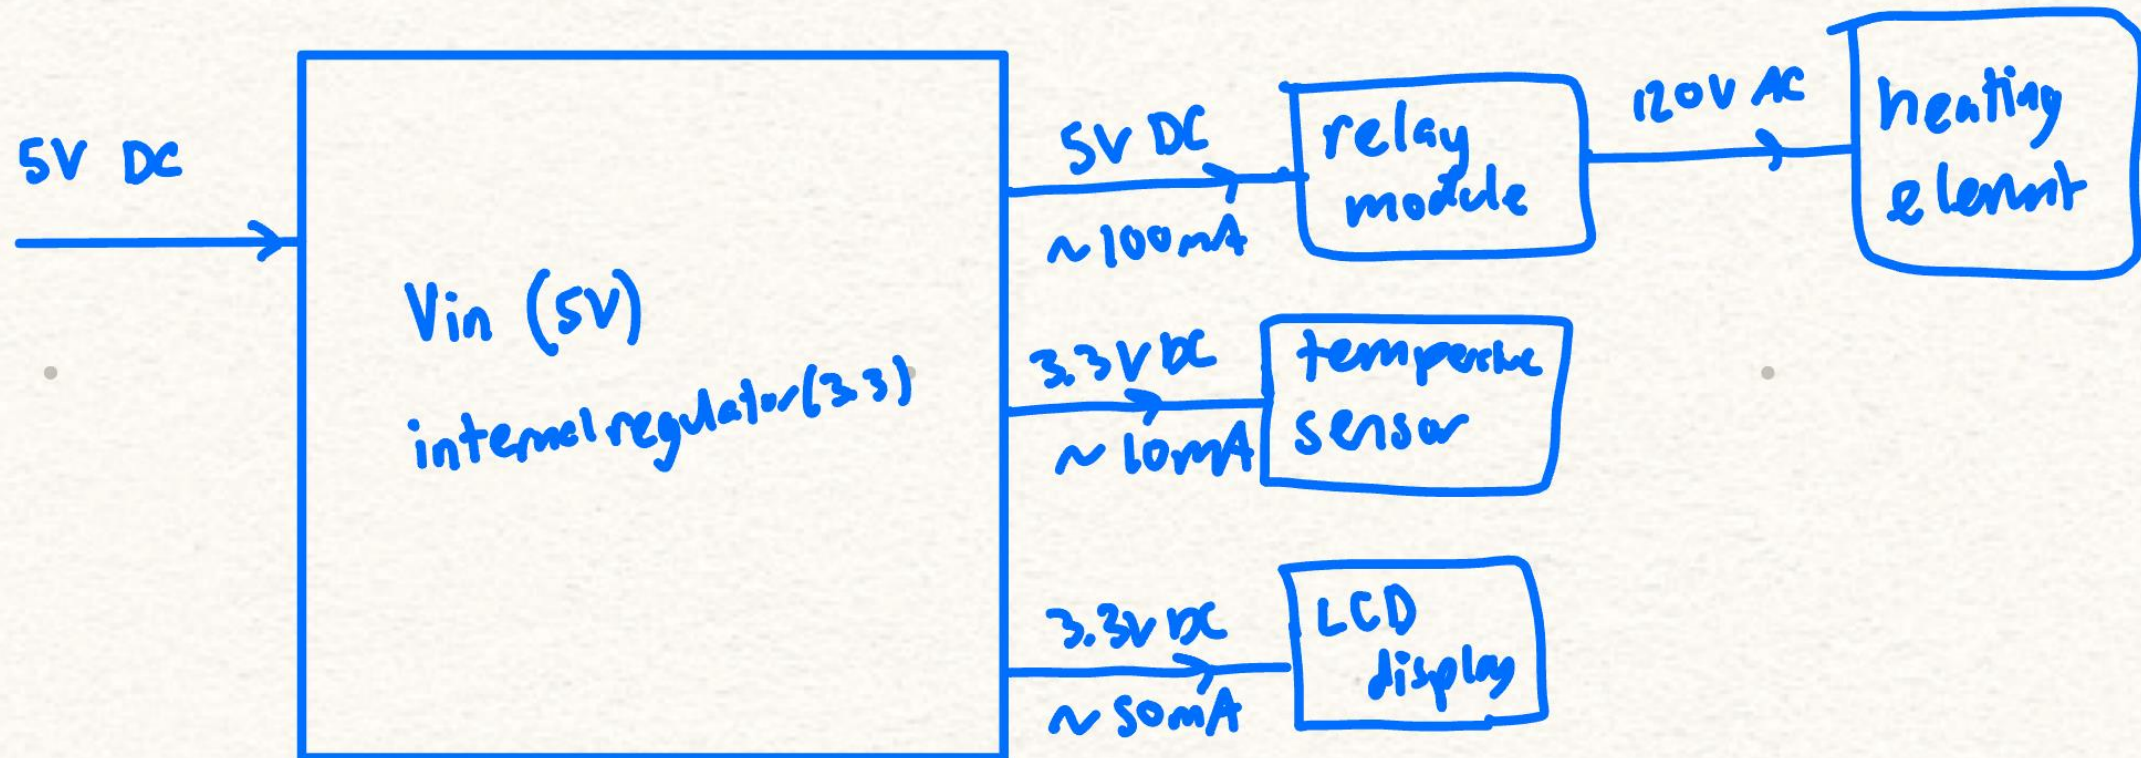 5V DC
Vin (5V)
internal regulator (3.3)
5V DC
~100mA
relay
module
120V AC
heating
element
3.3V DC
~10mA
temperature
sensor
3.3V DC
~50mA
LCD
display